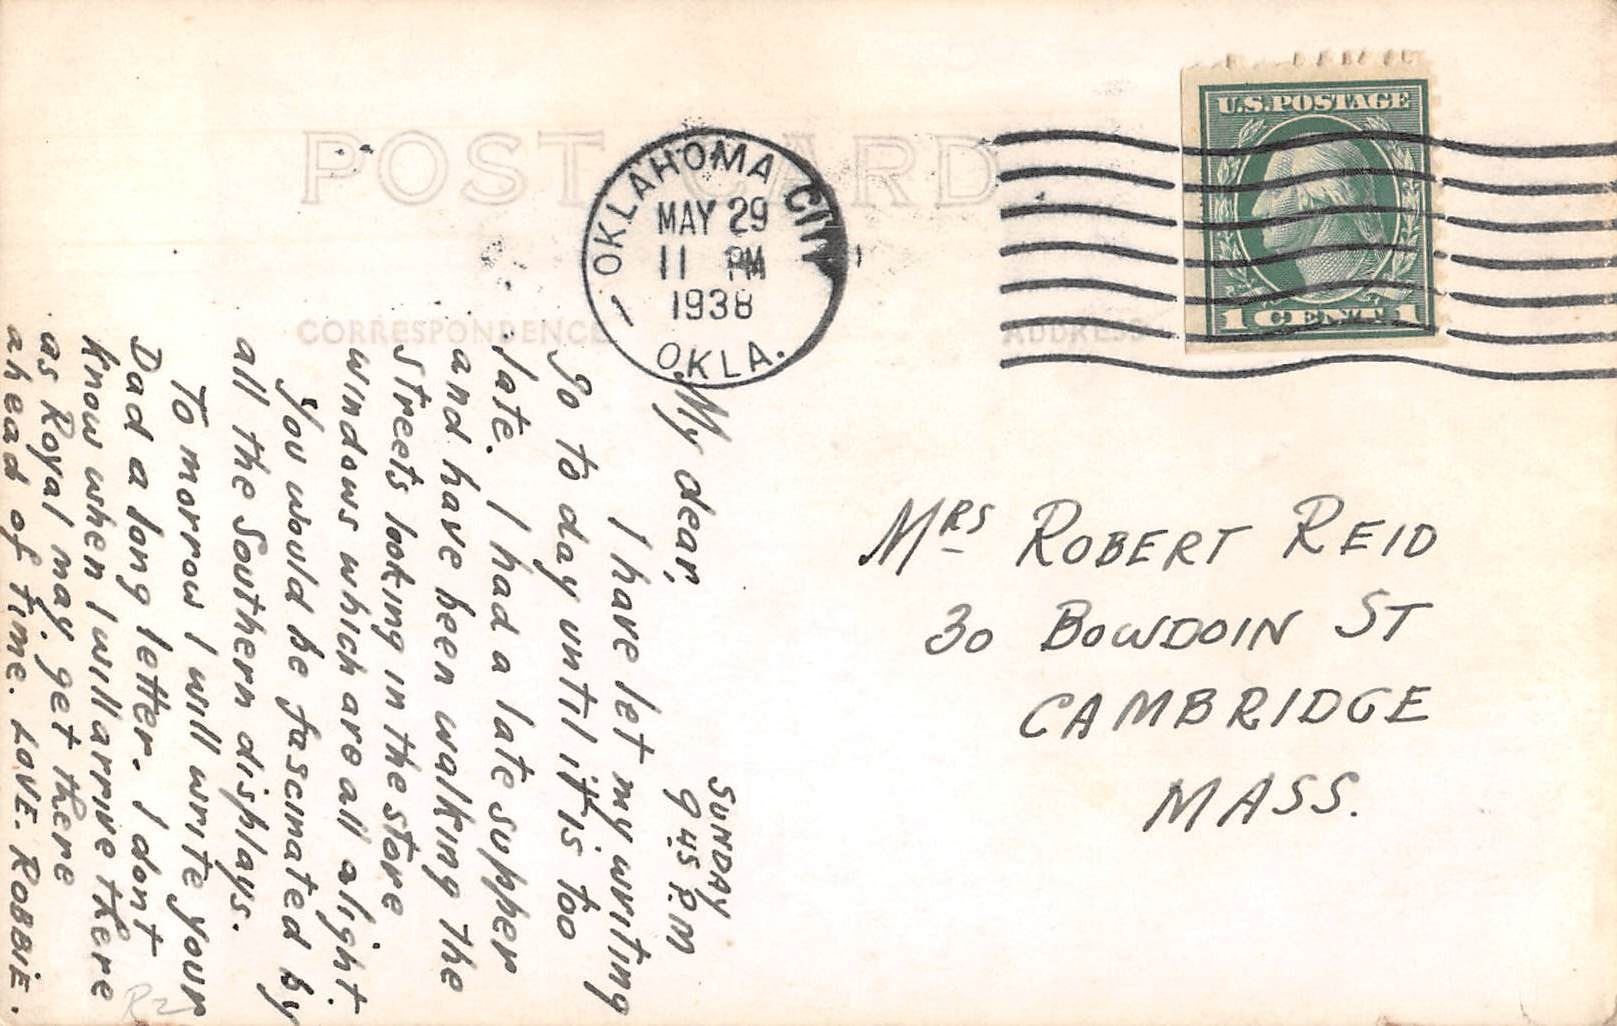 POST CARD
CORRESPONDENCE
ADDRESS
OKLAHOMA CITY
MAY 29
11 PM
1938
OKLA.
U.S. POSTAGE
1 CENT 1
SUNDAY
9 45 P.M
My dear,
I have let my writing
Go to day until it is too
late. I had a late supper
and have been walking the
streets looking in the store
windows which are all alight.
You would be fascinated by
all the Southern displays.
To morrow I will write your
Dad a long letter. I dont
know when I will arrive there
as Royal may get there
ahead of time. LOVE. ROBBIE.
MRS ROBERT REID
30 BOWDOIN ST
CAMBRIDGE
MASS.
R2